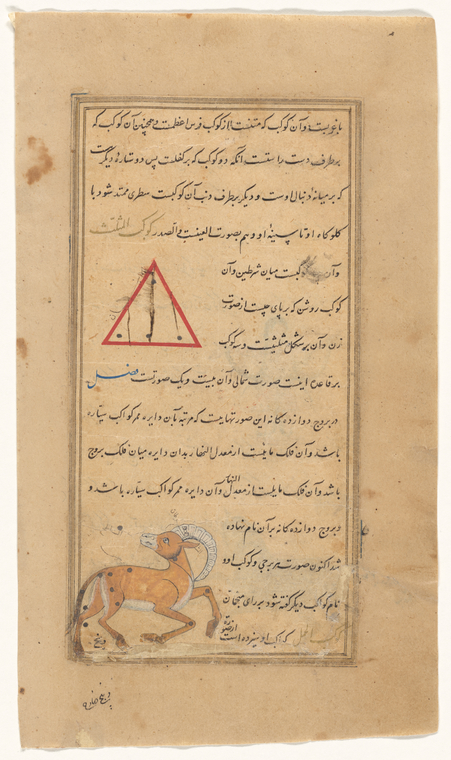 باغویست و آن کوکب که متنست از کوکب فرس اعظمست و همچنین آن کوکب که
بر طرف دست راستست آنگه دو کوکب که بر کفلست پس دو ستارهٔ دیگر
که بر میانهٔ دنبال اوست و دیگر بر طرف ذنب آن کوکبست سطری ممتد شود با
کلوکاه او تا سینهٔ او و هم بصورت العینت و الصدر کوکب المثلث
و آن کوکبست میان شرطین و آن
کوکب روشن که بر پای چپست از صورت
زن و آن بر شکل مثلثیست و سه کوکب
بر قاعده اینست صورت شمالی و آن بیست و یک صورتست فصل
در بروج دوازده کانه این صورتهاییست که مرتبه بآن دایره ممر کواکب سیّاره
باشد و آن فلک مایلست از معدل النهار بدان دایره میان فلک بروج
باشد و آن فلک مایلست از معدل النهار و آن دایره ممر کواکب سیّاره باشد و
در بروج دوازده کانه بر آن نام نهاده
شد اکنون صورت هر برجی و کوکب او و
نام کواکب دیگر گفته شود بر رای منجمان
کوکب الحمل که کواکب او سیزده است
از صورة